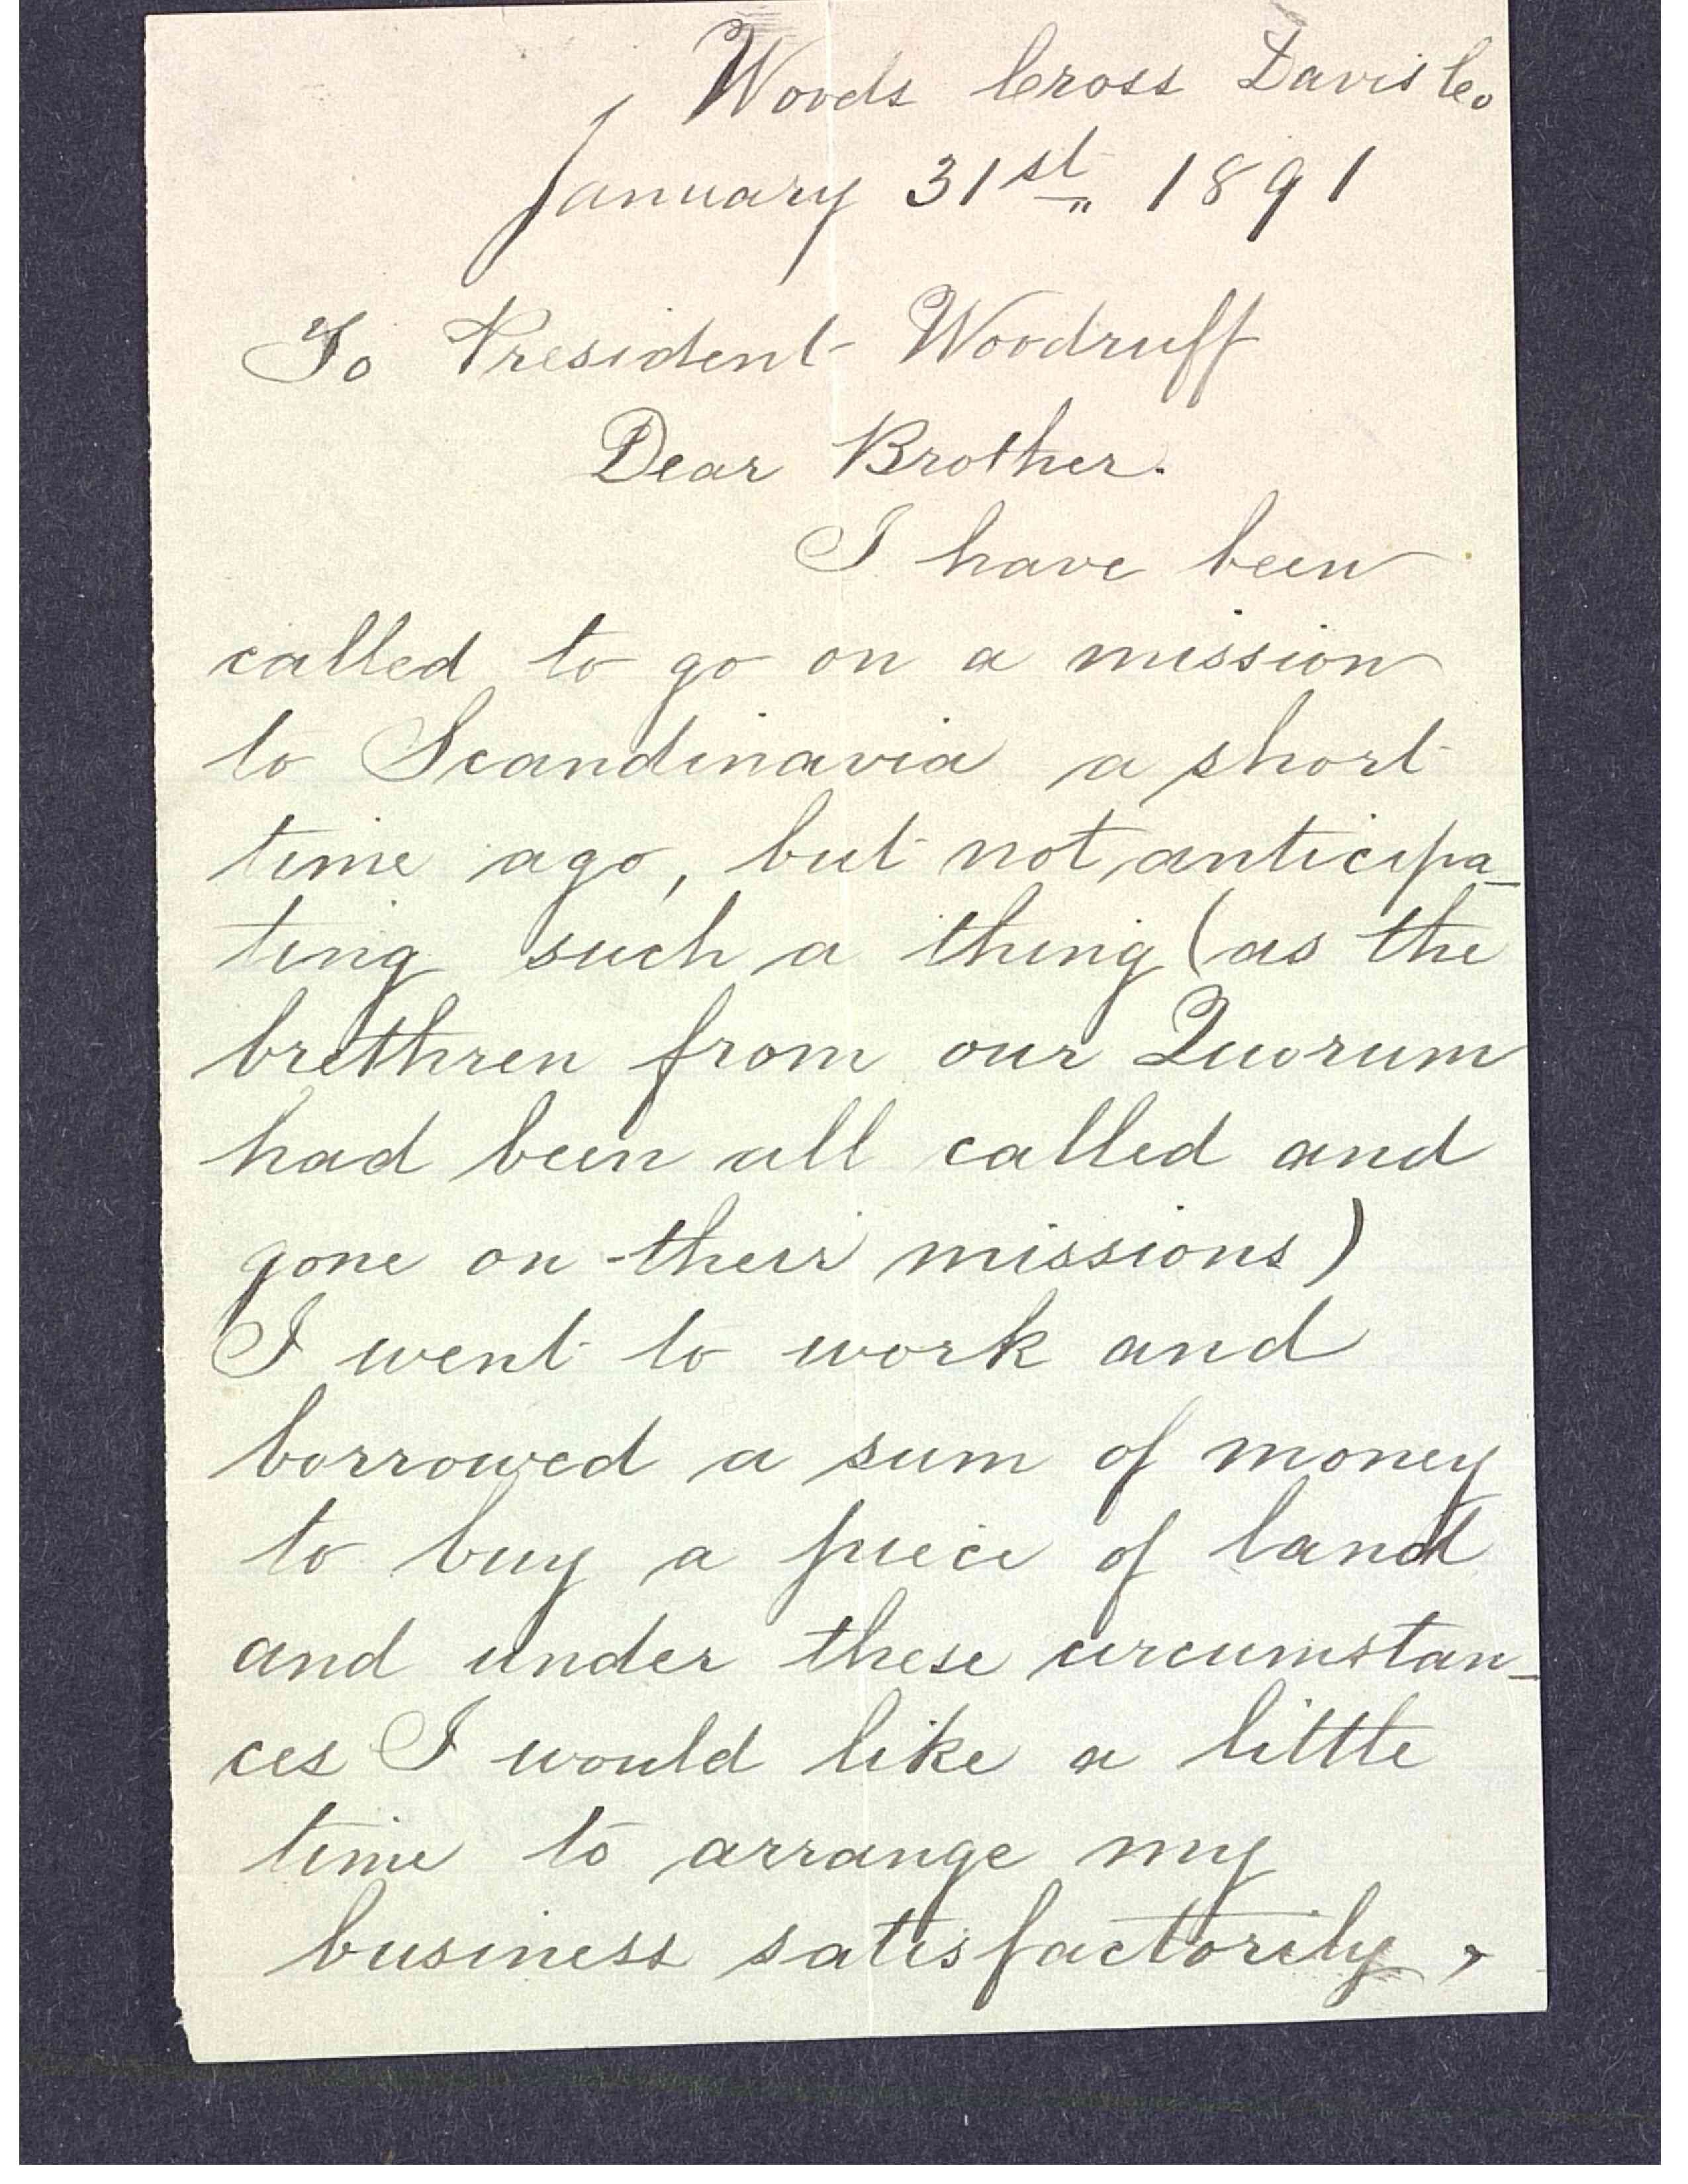 Woods Cross Davis Co
January 31st 1891
To President Woodruff
Dear Brother.
I have been
called to go on a mission
to Scandinavia a short
time ago, but not anticipa-
ting such a thing (as the
brethren from our Quorum
had been all called and
gone on their missions)
I went to work and
borrowed a sum of money
to buy a piece of land
and under these circumstan-
ces I would like a little
time to arrange my
business satisfactorily,